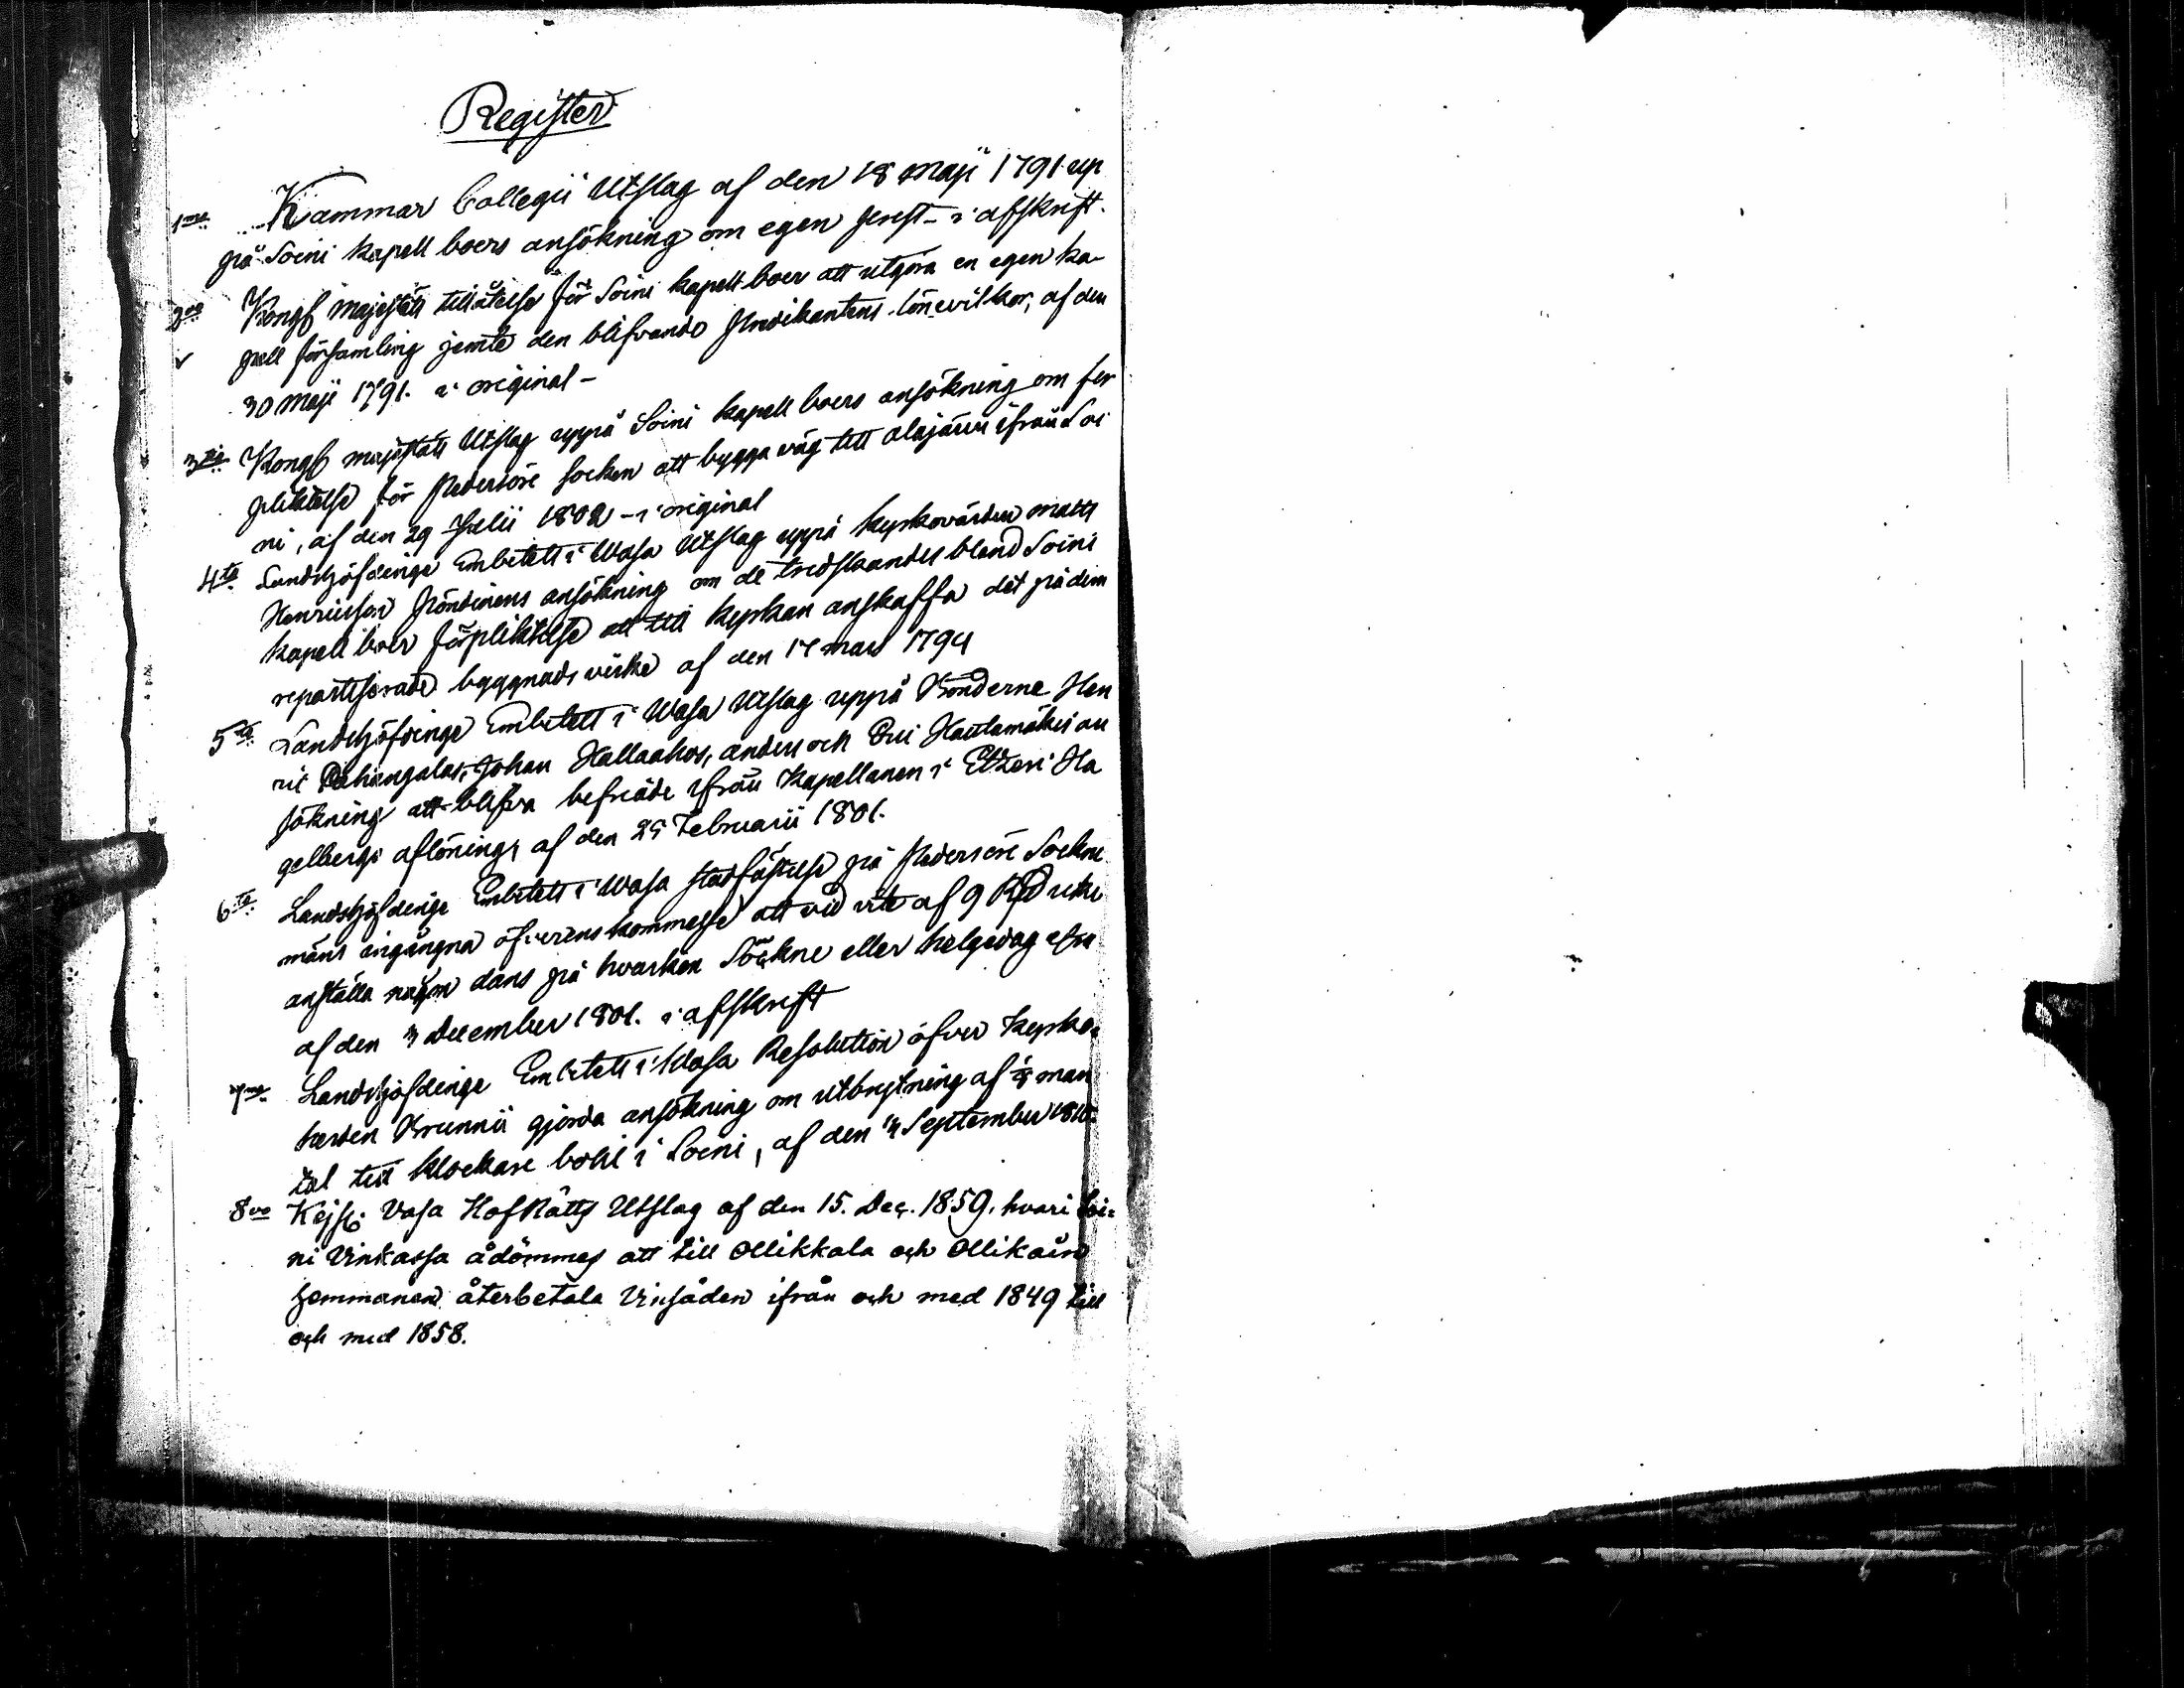 Register
1mo Kammar Collegii Utslag af den 18 Maji 1791. up
på Soini kapell boers ansökning om egen prest - i afskrift.
2do Kongl Majestäts tillåtelse för Soini kapell boer att utgöra en egen ka-
pell församling jemte den blifvande Predikantens lönevilkor, af den
30 Maji 1791. i original -
3tio Kongl Majestäts Utslag uppå Soini kapell boers ansökning om för
pliktelse för Pedersöre socken att bygga väg till Alajärvi ifrån Soi
ni, af den 29 Julii 1802 - i original
4to Landshöfdinge Embetets i Wasa Utslag uppå kyrkovärden Matts
Henricsson Pöndinens ansökning om de tredskandes bland Soini
kapell boer förpliktelse att till kyrkan anskaffa det på dem
repartiserade byggnads virke af den 17 Mars 1794
5to Landshöfdinge Embetets i Wasa Utslag uppå Bönderne Hen
ric Pahangalas, Johan Hallaahos, Anders och Hautamäkis an
sökning att blifva befriade ifrån Kapellanen i Etzeri Ha
gelbergs aflöning, af den 25 Februarii 1801.
6to Landshöfdinge Embetets i Wasa stadfästelse på Pedersöre Sockne
mäns ingångna öfverenskommelse att vid vite af 9 Rd
anställa någon dans på hvarken Söckne eller helgedag
af den 3 December 1801. i afskrift
7mo Landshöfdinge Embetets i Wasa Resolution öfver kyrko-
herden Brunnii gjorda ansökning om utbrytning af 1/8 man
tal till klockare bohl i Soini, af den September
8vo Kejs. Vasa HofRätts Utslag af den 15. Dec. 1859. hvari Soi-
ni Vinkassa ådömmes att till Ollikkala och Ollikain
hemmanen återbetala Vinsäden ifrån och med 1849 till
och med 1858.